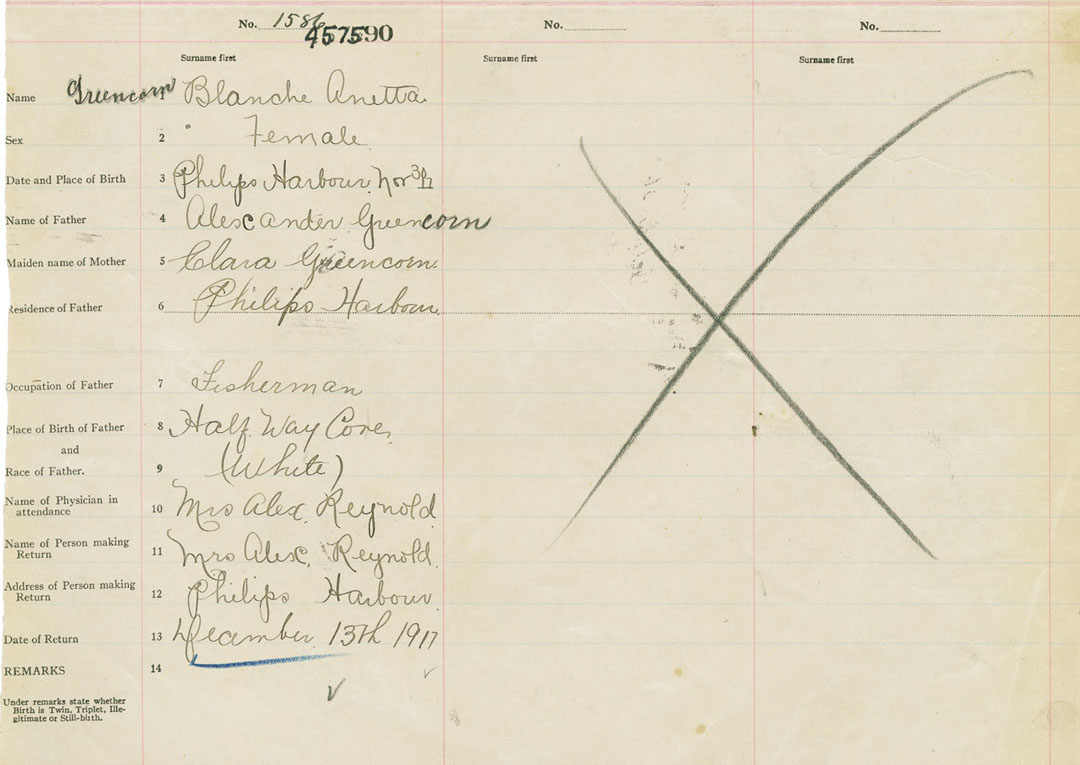 No. 1586 No. No.
457590
Surname first Surname first Surname first
Name Greencorn 1 Blanche Anetta
Sex 2 Female
Date and Place of Birth 3 Philips Harbour Nov 3/17
Name of Father 4 Alexcander Greencorn
Maiden name of Mother 5 Clara Greencorn.
Residence of Father 6 Philips Harbour
Occupation of Father 7 Fisherman
Place of Birth of Father 8 Half Way Cove,
and
Race of Father. 9 (White)
Name of Physician in
attendance 10 Mrs Alex. Reynold
Name of Person making
Return 11 Mrs Alex. Reynold.
Address of Person making
Return 12 Philips Harbour
Date of Return 13 December 13th 1917
REMARKS 14
Under remarks state whether
Birth is Twin, Triplet, Ille-
gitimate or Still-birth.